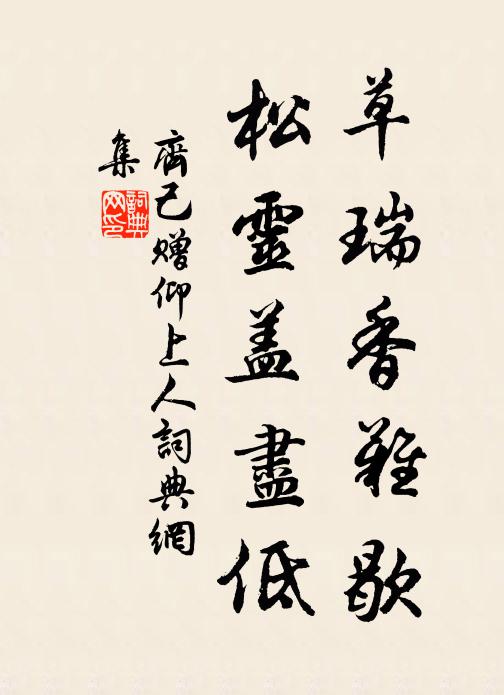 草瑞香難歇
松靈盖盡低
齊己贈仰上人詞典網
集
詞典
网印